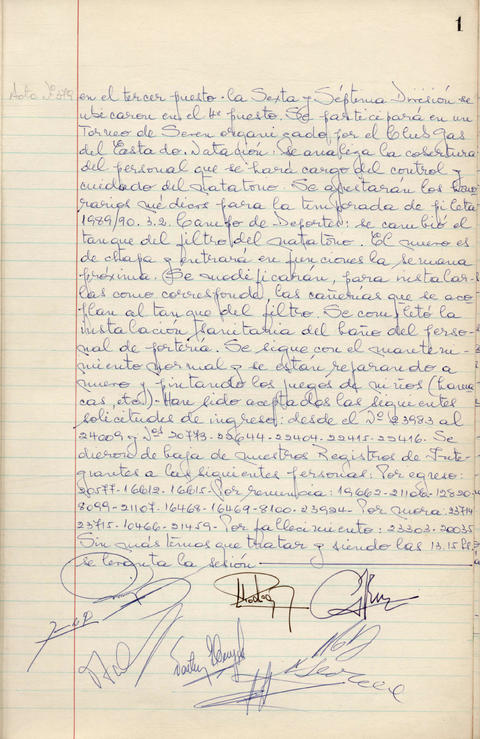 1
Acta Nº 379
en el tercer puesto. la Sexta y Séptima División se
ubicaron en el 4º puesto. Se participará en un
Torneo de Seven organizado por el Club Gas
del Estado. Natación: se analiza la cobertura
del personal que se hará cargo del control y
cuidado del natatorio. Se ajustarán los hono-
rarios médicos para la temporada de pileta
1989/90. 3.2. Campo de Deportes: se cambió el
tanque del filtro del natatorio. El nuevo es
de chapa y entrará en funciones la semana
próxima. Se modificarán, para instalar-
las como corresponde, las cañerías que se aco-
plan al tanque del filtro. Se completó la
instalación sanitaria del baño del perso-
nal de portería. Se sigue con el manteni-
miento normal y se están reparando a
nuevo y pintando los juegos de niños (hama-
cas, etc.)- Han sido aceptadas las siguientes
solicitudes de ingreso: desde el Nº 23983 al
24009 y Nos 20773-22644-22404-22415-22416. Se
dieron de baja de nuestros Registros de Inte-
grantes a las siguientes personas: Por egreso:
20577-16612-16615- Por renuncia: 19662-21106-12820-
8099-21107-16468-16469-8100-23924- Por mora: 23714
23715-10466-21459- Por fallecimiento: 23303-20035
Sin más temas que tratar y siendo las 13.15 hs.
se levanta la sesión